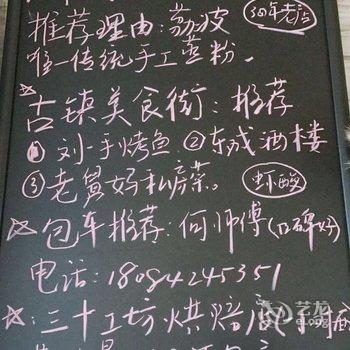 推荐理由:荔波 30年老店
唯一传统手工卷粉。
☆古镇美食街:推荐
①刘一手烤鱼 ②东成酒楼
③老舅妈私房菜。 虾酸
☆包车推荐:何师傅(口碑好)
电话:18084245351
☆:三十工坊烘焙
艺龙
eLong.com